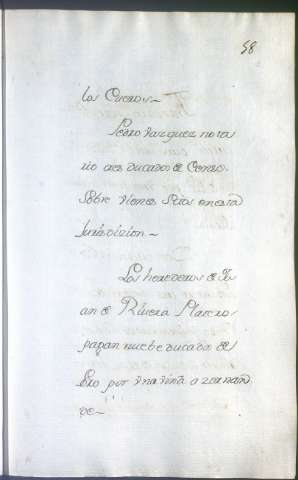 58
los Cueros~
Pedro Vazquez nota
rio tres ducados de Censo
Sobre vienes sitos en esta
Jurisdizion~
Los herederos de Ju
an de Rivera Platero
pagan nuebe ducados de
por vna viña a
de~